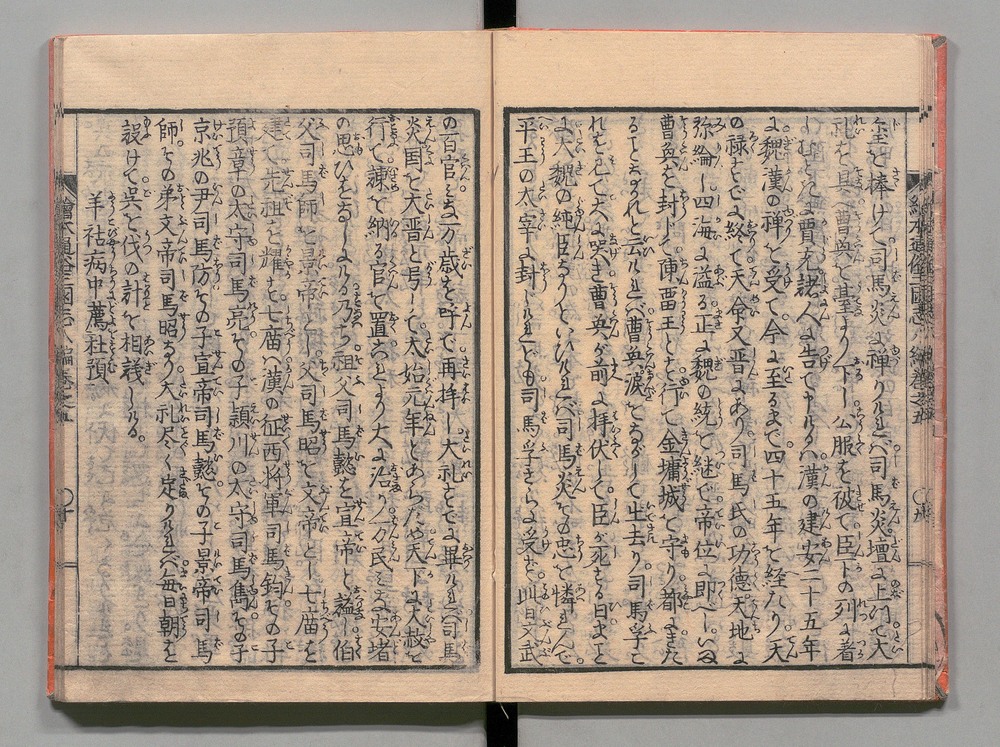 璽を捧げて司馬炎に禅りければ司馬炎壇に上つて大
礼を具へ曹奐を基より下し公服を被て臣下の列に着
しむとき賈充諸人に告て申しけるハ漢の建安二十五年
に魏漢の禅を受て今に至るまで四十五年を経たり天
の禄すでに終て天命又晋にあり司馬氏の功徳天地に
弥綸し四海に溢る正に魏の統を継で帝位に即べしいま
曹奐を封じて陳留王とす行て金墉城を守り都にまた
るゝことなかれと云ければ曹奐涙をながして出去り司馬孚こ
れをみて大に哭き曹奐が前に拝伏して臣が死する日まこと
に大魏の純臣なりといひければ司馬炎その忠を憐れんで
平王の太宰に封じけれども司馬孚さらに受ず此日文武
の百官みな万歳を呼で再拝し大礼すでに畢ければ司馬
炎国を大晋と号して太始元年とあらため天下に大赦を
行て諫を納る官を置これより大に治り万民みな安堵
の思ひをなしける乃ち祖父司馬懿を宣帝と謚し伯
父司馬師を景帝とし父司馬昭を文帝とし七庿を
建て先祖を耀す七庿ハ漢の征西将軍司馬鈞その子
預章の太守司馬亮その子潁川の太守司馬雋その子
京兆の尹司馬防その子宣帝司馬懿その子景帝司馬
師その弟文帝司馬昭なり大礼尽く定りければ毎日朝を
設けて呉を伐の計を相議しける
羊祜病中薦杜預